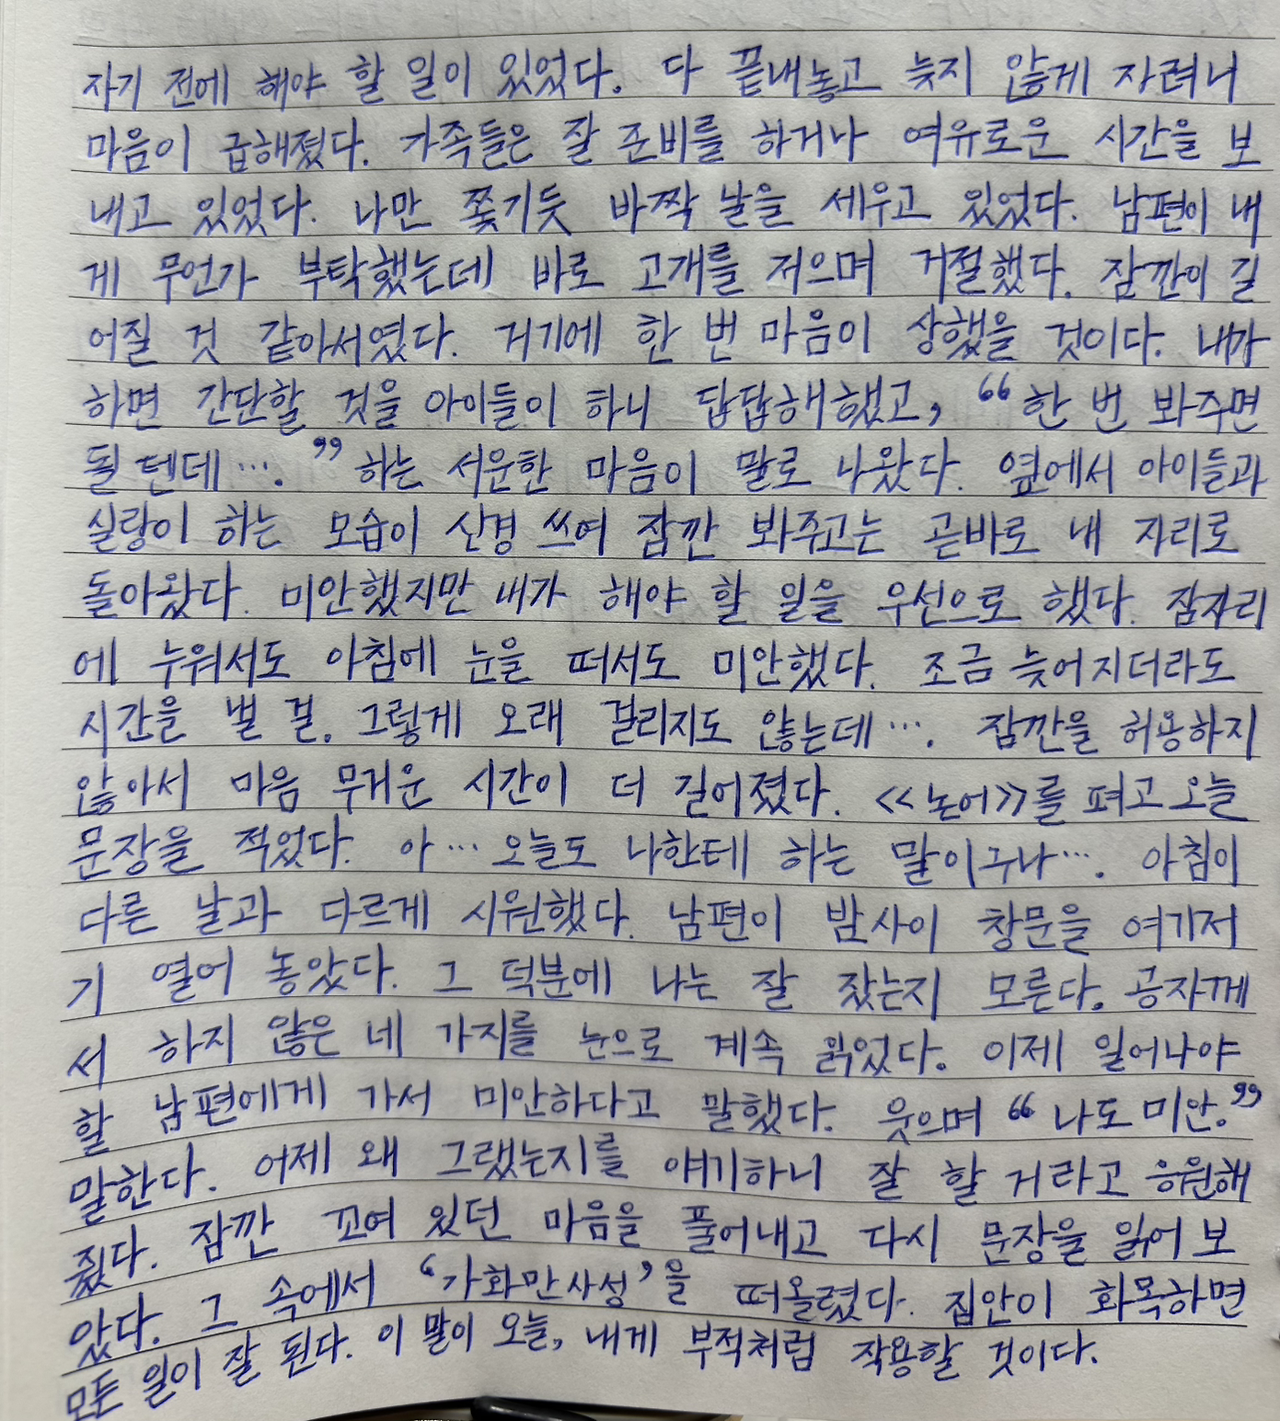 자기 전에 해야 할 일이 있었다. 다 끝내놓고 늦지 않게 자려니
마음이 급해졌다. 가족들은 잘 준비를 하거나 여유로운 시간을 보
내고 있었다. 나만 쫓기듯 바짝 날을 세우고 있었다. 남편이 내
게 무언가 부탁했는데 바로 고개를 저으며 거절했다. 잠깐이 길
어질 것 같아서였다. 거기에 한 번 마음이 상했을 것이다. 내가
하면 간단할 것을 아이들이 하니 답답해했고, “한 번 봐주면
될 텐데….” 하는 서운한 마음이 말로 나왔다. 옆에서 아이들과
실랑이 하는 모습이 신경 쓰여 잠깐 봐주고는 곧바로 내 자리로
돌아왔다. 미안했지만 내가 해야 할 일을 우선으로 했다. 잠자리
에 누워서도 아침에 눈을 떠서도 미안했다. 조금 늦어지더라도
시간을 낼 걸. 그렇게 오래 걸리지도 않는데…. 잠깐을 허용하지
않아서 마음 무거운 시간이 더 길어졌다. <<논어>>를 펴고 오늘
문장을 적었다. 아… 오늘도 나한테 하는 말이구나…. 아침이
다른 날과 다르게 시원했다. 남편이 밤사이 창문을 여기저
기 열어 놓았다. 그 덕분에 나는 잘 잤는지 모른다. 공자께
서 하지 않은 네 가지를 눈으로 계속 읽었다. 이제 일어나야
할 남편에게 가서 미안하다고 말했다. 웃으며 “나도 미안.”
말한다. 어제 왜 그랬는지를 얘기하니 잘 할 거라고 응원해
줬다. 잠깐 꼬여 있던 마음을 풀어내고 다시 문장을 읽어 보
았다. 그 속에서 ‘가화만사성’을 떠올렸다. 집안이 화목하면
모든 일이 잘 된다. 이 말이 오늘, 내게 부적처럼 작용할 것이다.